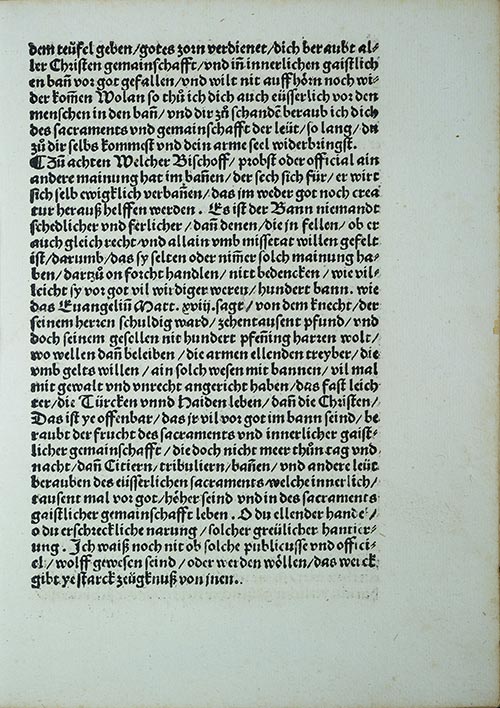 dem teüfel geben/gotes zorn verdienet/dich beraubt al⸗
ler Christen gemainschafft/vnd in̄ innerlichen gaistlich
en ban̄ vor got gefallen/vnd wilt nit auffhörn noch wi⸗
der kom̄en Wolan so thů ich dich auch eüsserlich vor den
menschen in den ban̄/vnd dir zů schandē beraub ich dich
des sacraments vnd gemainschafft der leüt/so lang/du
zů dir selbs kommest vnd dein arme seel widerbringst.
¶ Zů achten Welcher Bischoff/probst oder official ain
andere mainung hat im ban̄en/der sech sich für/er wirt
sich selb ewigklich verban̄en/das jm weder got noch crea
tur herauß helffen werden. Es ist der Bann niemandt
schedlicher vnd ferlicher/dan̄ denen/die jn fellen/ob er
auch gleich recht vnd allain vmb missetat willen gefelt
ist/darumb/das sy selten oder nim̄er solch mainung ha⸗
ben/dartzů on forcht handlen/nitt bedencken/wie vil⸗
leicht sy vor got vil wirdiger weren/hundert bann. wie
das Euangeliū Matt. xviij. sagt/von dem knecht/der
seinem herren schuldig ward/zehentausent pfund/vnd
doch seinem gesellen nit hundert pfen̄ing harren wolt/
wo wellen dan̄ beleiben/die armen ellenden treyber/die
vmb gelts willen/ain solch wesen mit bannen/vil mal
mit gewalt vnd vnrecht angericht haben/das fast leich
ter/die Türcken vnnd Haiden leben/dan̄ die Christen/
Das ist ye offenbar/das jr vil vor got im bann seind/be
raubt der frucht des sacraments vnd innerlicher gaist⸗
licher gemainschafft/die doch nicht meer thůn tag vnd
nacht/dan̄ Citiern/tribuliern/ban̄en/vnd andere leüt
berauben des eüsserlichen sacraments/welche innerlich/
tausent mal vor got/höher seind vnd in des sacraments
gaistlicher gemainschafft leben. O du ellender handel/
o du erschreckliche narung/solcher greülicher hantier⸗
ung. Ich waiß noch nit ob solche publicusse vnd offici⸗
el/wolff gewesen seind/oder werden wöllen/das werck
gibt ye starck zeügknuß von jnen.